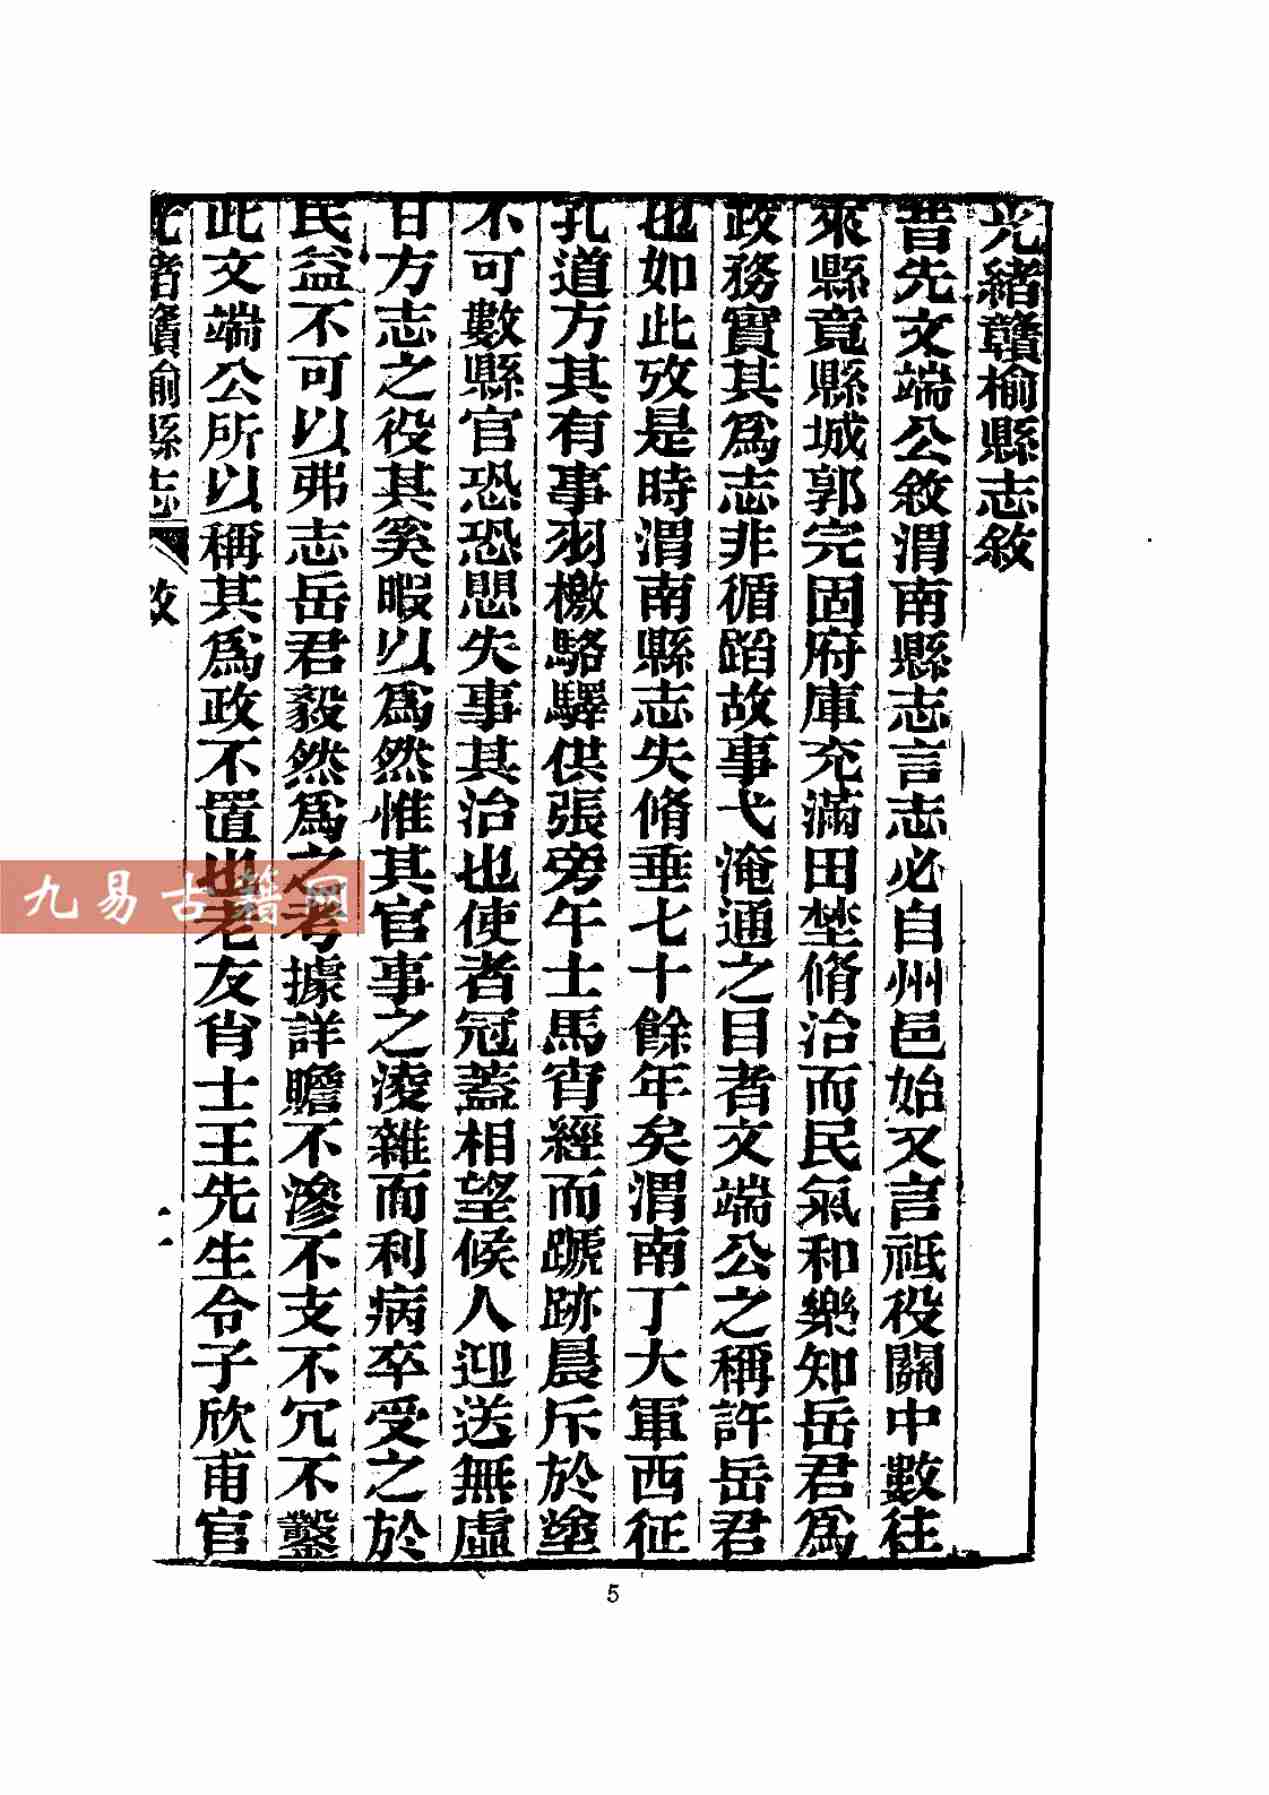 光緒贛榆縣志敘
昔先文端公敘渭南縣志言志必自州邑始又言祗役關中數往
來縣竟縣城郭完固府庫充滿田埜脩治而民氣和樂知岳君爲
政務實其爲志非循蹈故事弋淹通之目者文端公之稱許岳君
也如此攷是時渭南縣志失脩垂七十餘年矣渭南丁大軍西征
孔道方其有事羽檄駱驛供張旁午士馬宵經而蹏跡晨斥於塗
不可數縣官恐恐思失事其治也使者冠蓋相望候人迎送無虛
日方志之役其奚暇以爲然惟其官事之淩雜而利病卒受之於
民益不可以弗志岳君毅然爲之考據詳贍不滲不支不冗不鑿
此文端公所以稱其爲政不置也老友肖士王先生令子欣甫官
光緒贛榆縣志 敘 一
九易古籍网
5